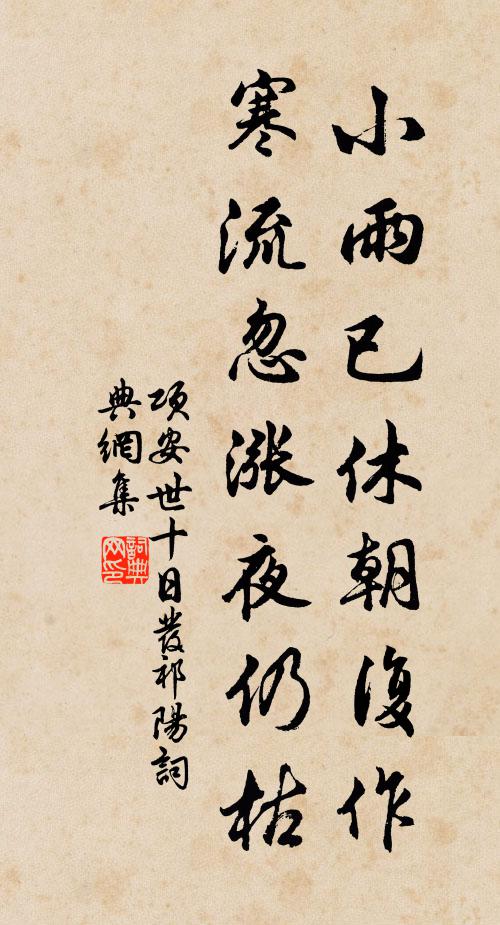 小雨已休朝復作
寒流忽漲夜仍枯
項安世十日發祁陽詞
典網集
詞典網印